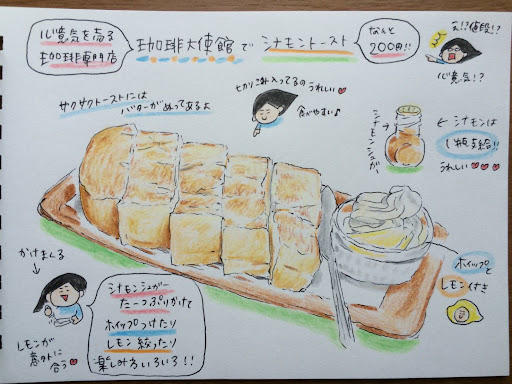 心意気を売る
珈琲専門店
珈琲大使館で
シナモントースト
なんと
200円!!
え!?値段!?
心意気!?
サクサクトーストには
バターがぬってあるよ
切りこみ入ってるのうれしい
食べやすい♪
シナモンシュガー
←シナモンは
1瓶支給!!
うれしい
ホイップと
レモンくさき
かけまくる
シナモンシュガー
たーっぷりかけて
ホイップつけたり
レモン絞ったり
楽しみ方いろいろ!!
レモンが
意外に
合う